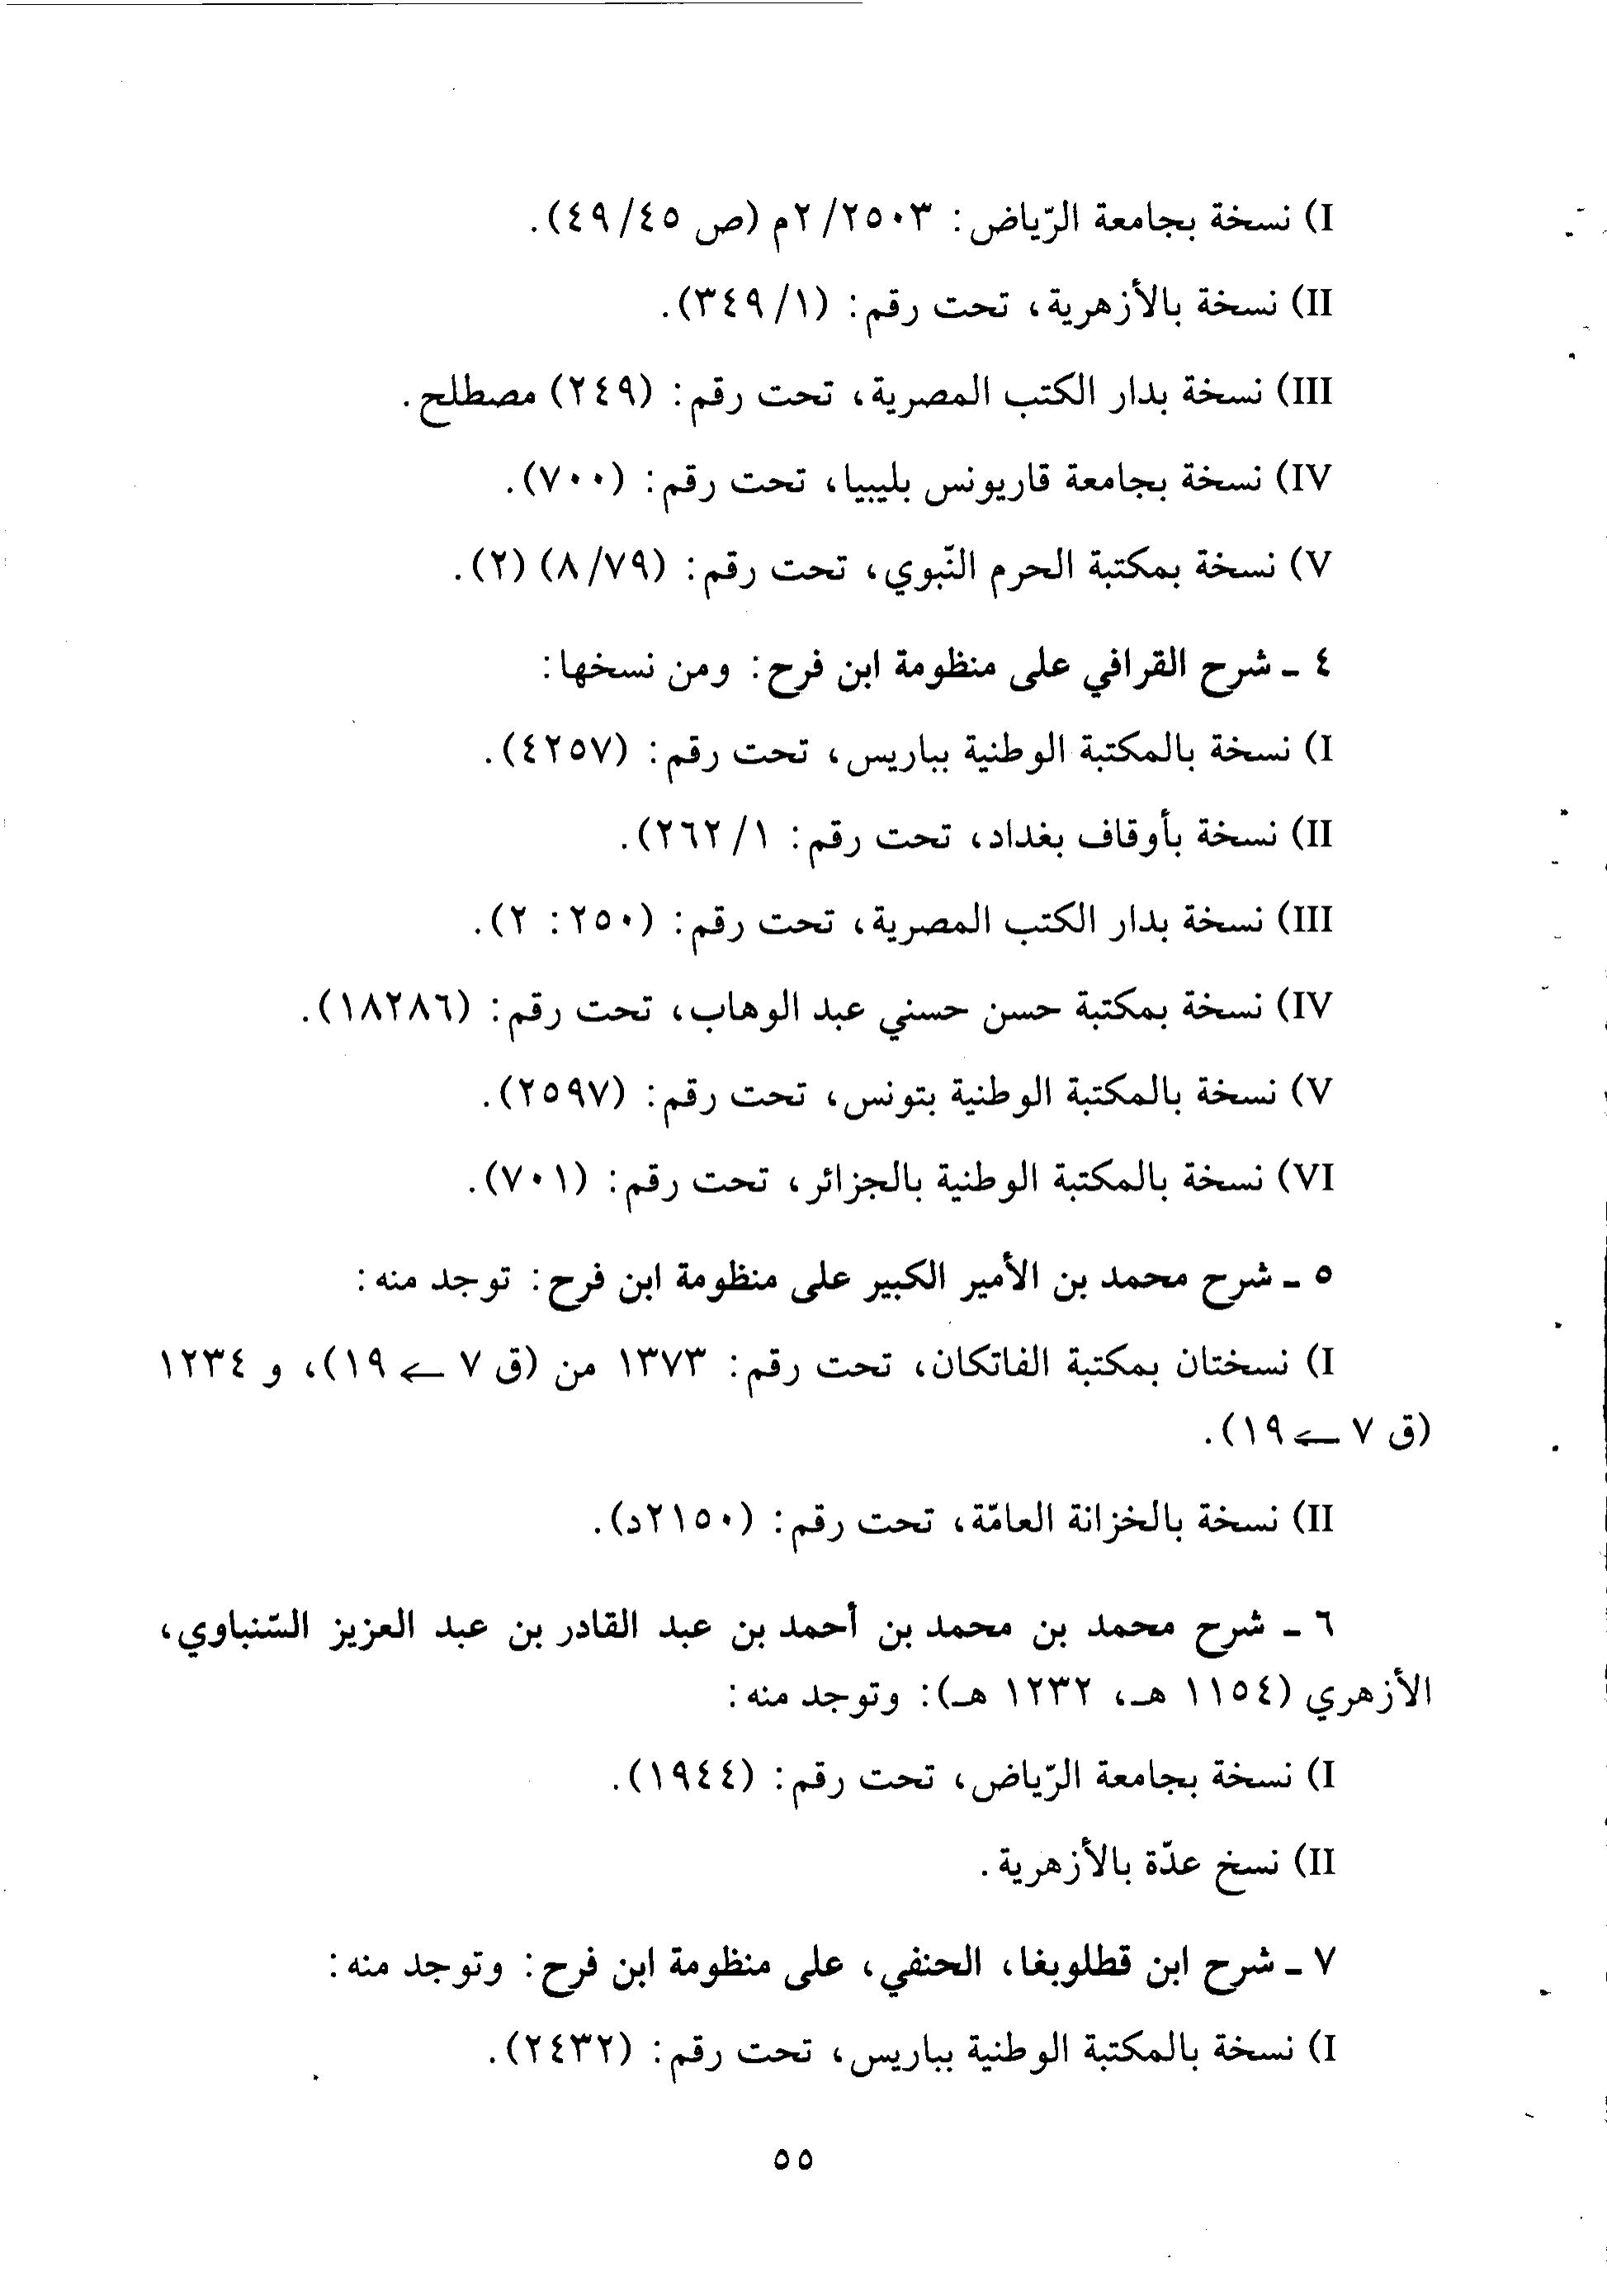 I) نسخة بجامعة الرّياض: ٢٥٠٣/ ٢م (ص ٤٩/٤٥).
II) نسخة بالأزهرية، تحت رقم: (٣٤٩/١).
III) نسخة بدار الكتب المصرية، تحت رقم: (٢٤٩) مصطلح.
IV) نسخة بجامعة قاريونس بليبيا، تحت رقم: (٧٠٠).
V) نسخة بمكتبة الحرم النّبوي، تحت رقم: (٨/٧٩) (٢).
٤ ـ شرح القرافي على منظومة ابن فرح: ومن نسخها:
I) نسخة بالمكتبة الوطنية بباريس، تحت رقم: (٤٢٥٧).
II) نسخة بأوقاف بغداد، تحت رقم: ٢٦٢/١).
III) نسخة بدار الكتب المصرية، تحت رقم: (٢٥٠: ٢).
IV) نسخة بمكتبة حسن حسني عبد الوهاب، تحت رقم: (١٨٢٨٦).
V) نسخة بالمكتبة الوطنية بتونس، تحت رقم: (٢٥٩٧).
VI) نسخة بالمكتبة الوطنية بالجزائر، تحت رقم: (٧٠١).
٥ ـ شرح محمد بن الأمير الكبير على منظومة ابن فرح: توجد منه:
I) نسختان بمكتبة الفاتكان، تحت رقم: ١٣٧٣ من (ق ٧ ← ١٩)، و ١٢٣٤
(ق ٧ ← ١٩).
II) نسخة بالخزانة العامّة، تحت رقم: (٢١٥٠د).
٦ ـ شرح محمد بن محمد بن أحمد بن عبد القادر بن عبد العزيز السّنباوي،
الأزهري (١١٥٤ هـ، ١٢٣٢ هـ): وتوجد منه:
I) نسخة بجامعة الرّياض، تحت رقم: (١٩٤٤).
II) نسخ عدّة بالأزهرية.
٧ ـ شرح ابن قطلوبغا، الحنفي، على منظومة ابن فرح: وتوجد منه:
I) نسخة بالمكتبة الوطنية بباريس، تحت رقم: (٢٤٣٢).
٥٥